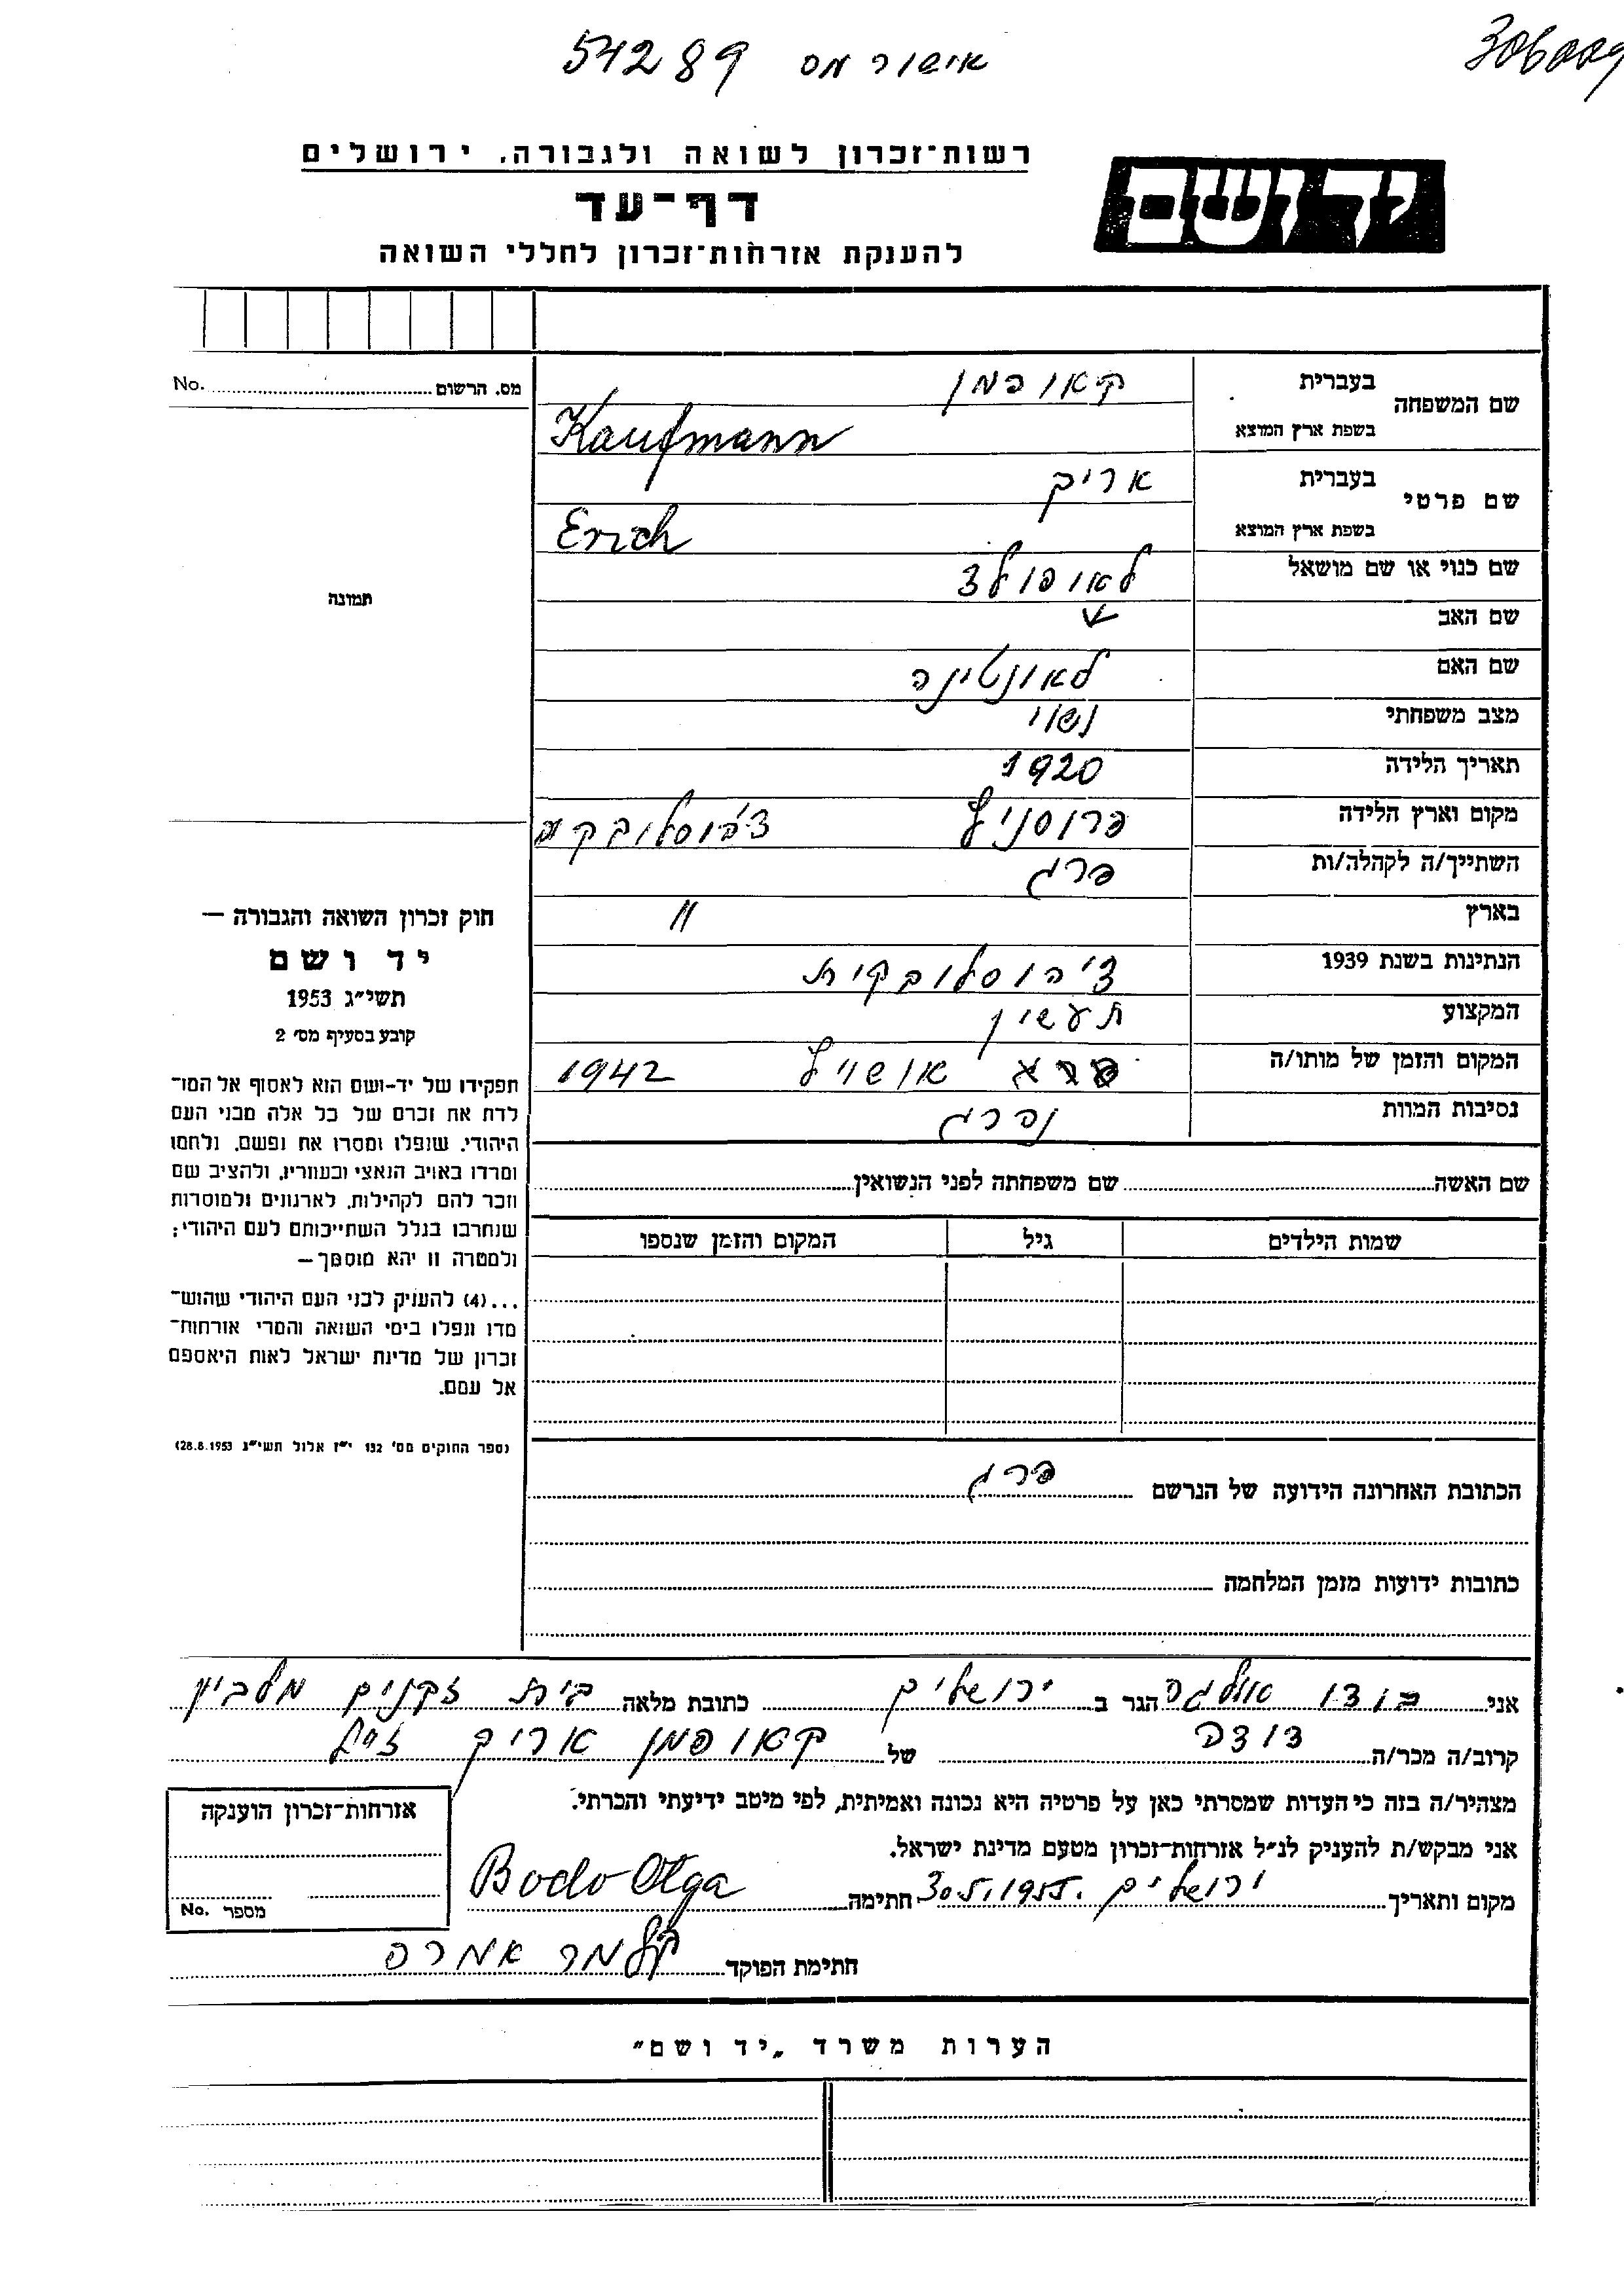 אישור מס 54289
306009
רשות־זכרון לשואה ולגבורה, ירושלים
יד ושם
דף־עד
להענקת אזרחות־זכרון לחללי השואה
מס. הרשום No.
תמונה
שם המשפחה בעברית קאופמן
בשפת ארץ המוצא Kaufmann
שם פרטי בעברית אריך
בשפת ארץ המוצא Erich
שם כנוי או שם מושאל לאופולד
שם האב
שם האם לאונטינה
מצב משפחתי נשוי
תאריך הלידה 1920
מקום וארץ הלידה פרוסניץ
השתייך/ה לקהלה/ות פרג
בארץ "
הנתינות בשנת 1939 צ'הוסלובקית
המקצוע תעשין
המקום והזמן של מותו/ה אושויץ 1942
נסיבות המוות נהרג
שם האשה שם משפחתה לפני הנשואין
שמות הילדים גיל המקום והזמן שנספו
הכתובת האחרונה הידועה של הנרשם פרג
כתובות ידועות מזמן המלחמה
חוק זכרון השואה והגבורה —
יד ושם
תשי״ג 1953
קובע בסעיף מס׳ 2
תפקידו של יד־ושם הוא לאסוף אל המו־
לדת את זכרם של כל אלה מבני העם
היהודי, שנפלו ומסרו את נפשם, נלחמו
ומרדו באויב הנאצי ובעוזריו, ולהציב שם
וזכר להם לקהילות, לארגונים ולמוסדות
שנחרבו בגלל השתייכותם לעם היהודי;
ולמטרה זו יהא מוסמך—
...(4) להעניק לבני העם היהודי שהוש־
מדו ונפלו בימי השואה והמרי אזרחות־
זכרון של מדינת ישראל לאות היאספם
אל עמם.
(ספר החוקים מס׳ 132 י״ז אלול תשי״ג 28.8.1953)
אני בודו אולגה הגר ב ירושלים כתובת מלאה בית זקנים מלבין
קרוב/ה מכר/ה דודה של קאופמן אריך ז"ל
מצהיר/ה בזה כי העדות שמסרתי כאן על פרטיה היא נכונה ואמיתית, לפי מיטב ידיעתי והכרתי.
אני מבקש/ת להעניק לנ״ל אזרחות־זכרון מטעם מדינת ישראל.
מקום ותאריך ירושלים 30.5.1955. חתימה Bodo Olga
חתימת הפוקד
אזרחות־זכרון הוענקה
מספר No.
הערות משרד „יד ושם״